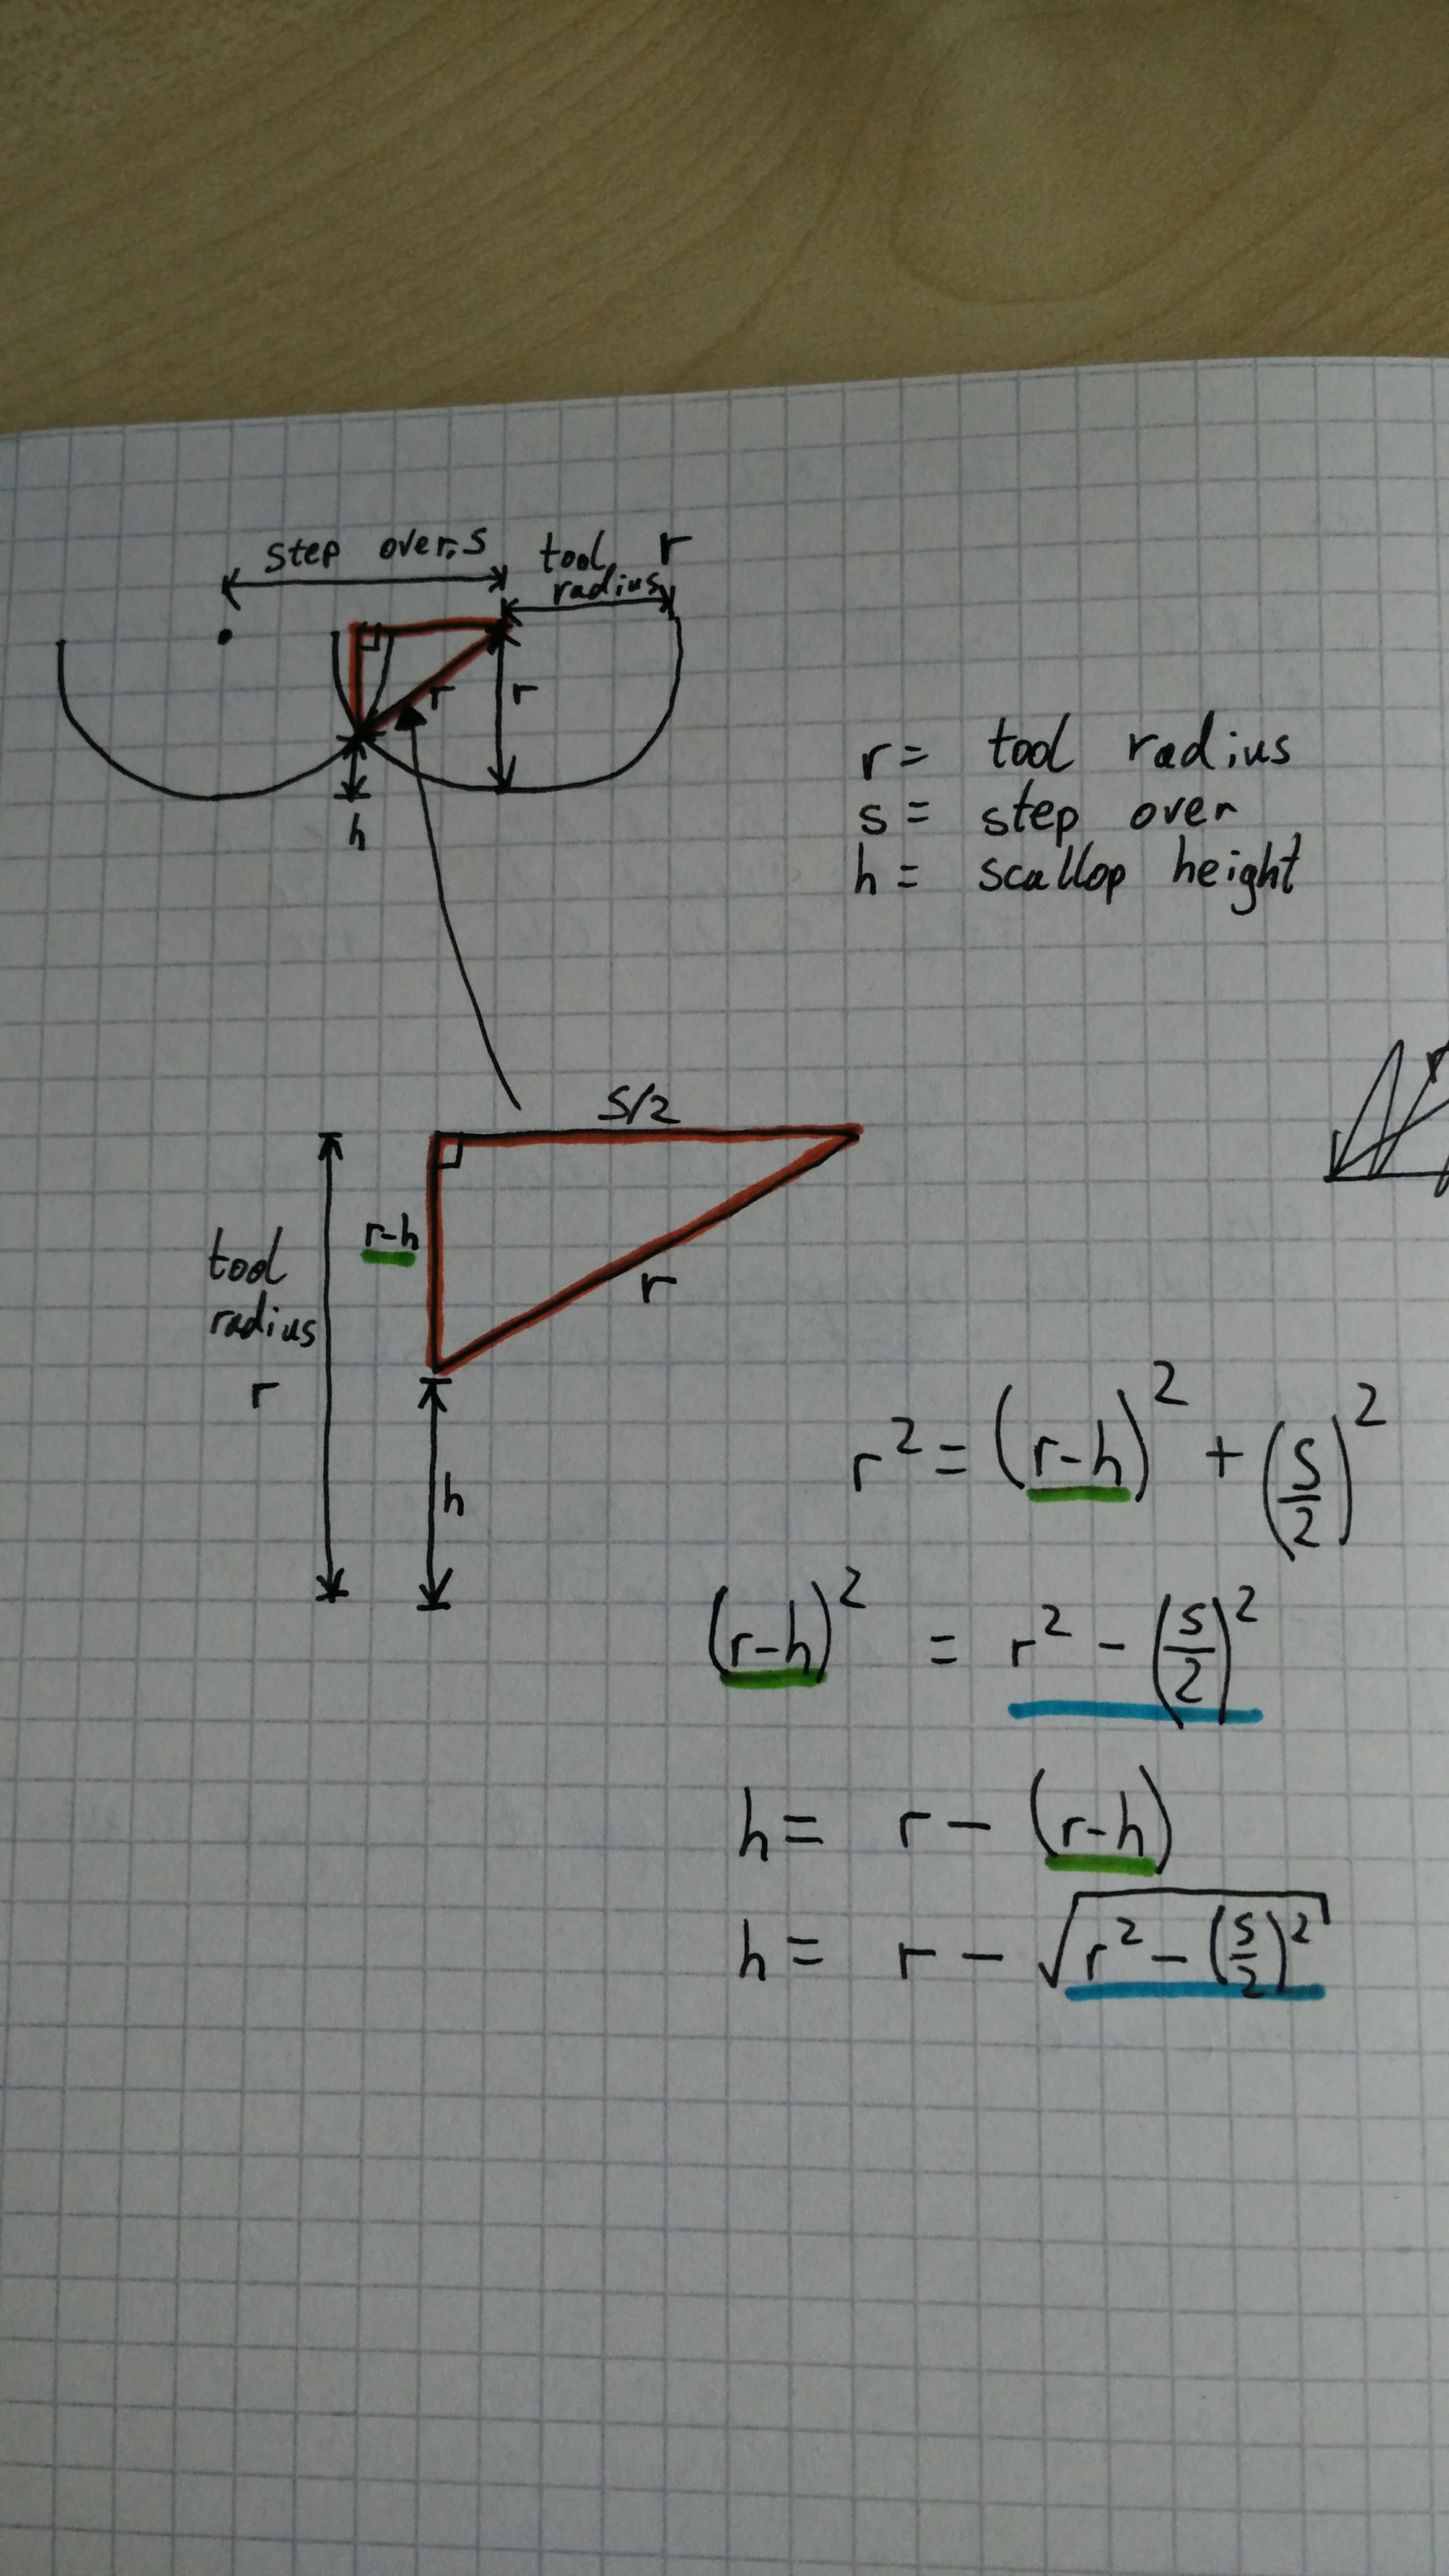 step over, s
tool, r
radius
r
r
h
r= tool radius
s= step over
h= scallop height
s/2
r-h
tool
radius
r
r
h
r² = (r-h)² + (s/2)²
(r-h)² = r² - (s/2)²
h= r - (r-h)
h= r - √(r² - (s/2)²)